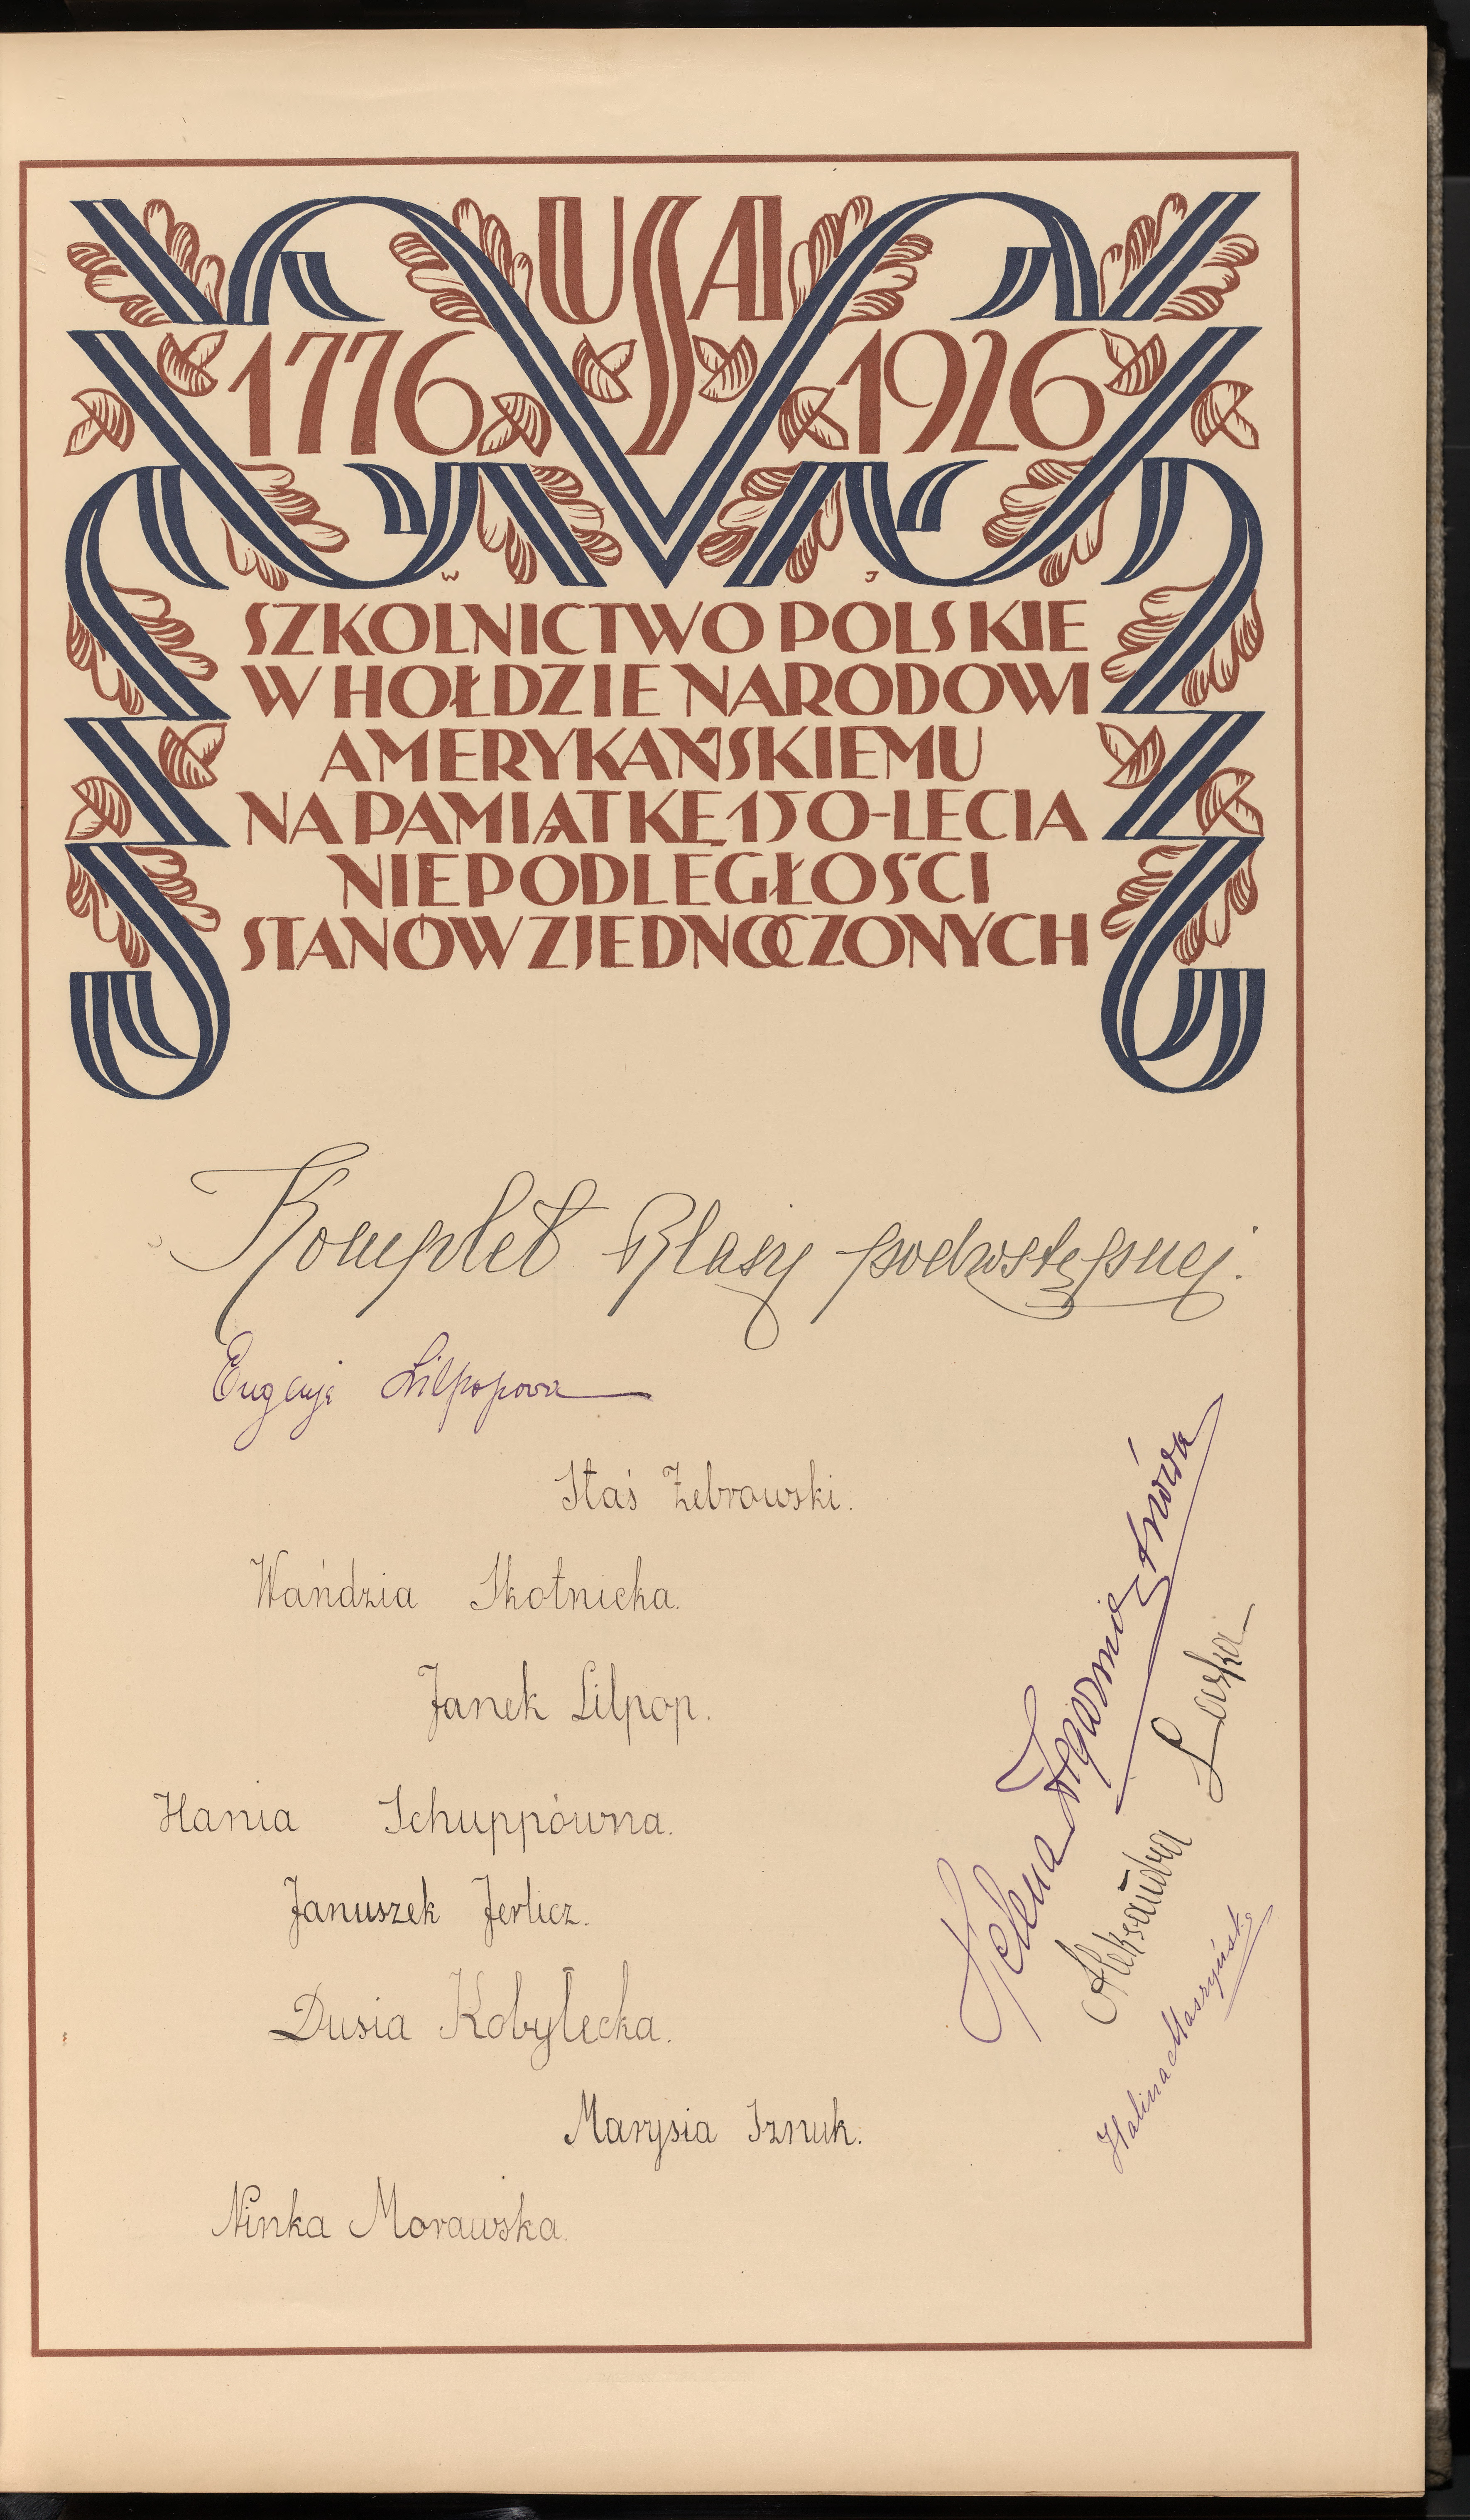 USA
1776 1926
W J
SZKOLNICTWO POLSKIE
W HOŁDZIE NARODOWI
AMERYKAŃSKIEMU
NA PAMIĄTKĘ 150-LECIA
NIEPODLEGŁOŚCI
STANÓW ZJEDNOCZONYCH
Komplet Klasy podwstępnej.
Eugenja Lilpopowa
Staś Żebrowski.
Wańdzia Skotnicka.
Janek Lilpop.
Hania Schuppówna.
Januszek Jerlicz.
Dusia Kobyłecka.
Marysia Sznuk.
Ninka Morawska.
Helena Zegarmistrzówna
Aleksandra Laska
Halina Maszyńska